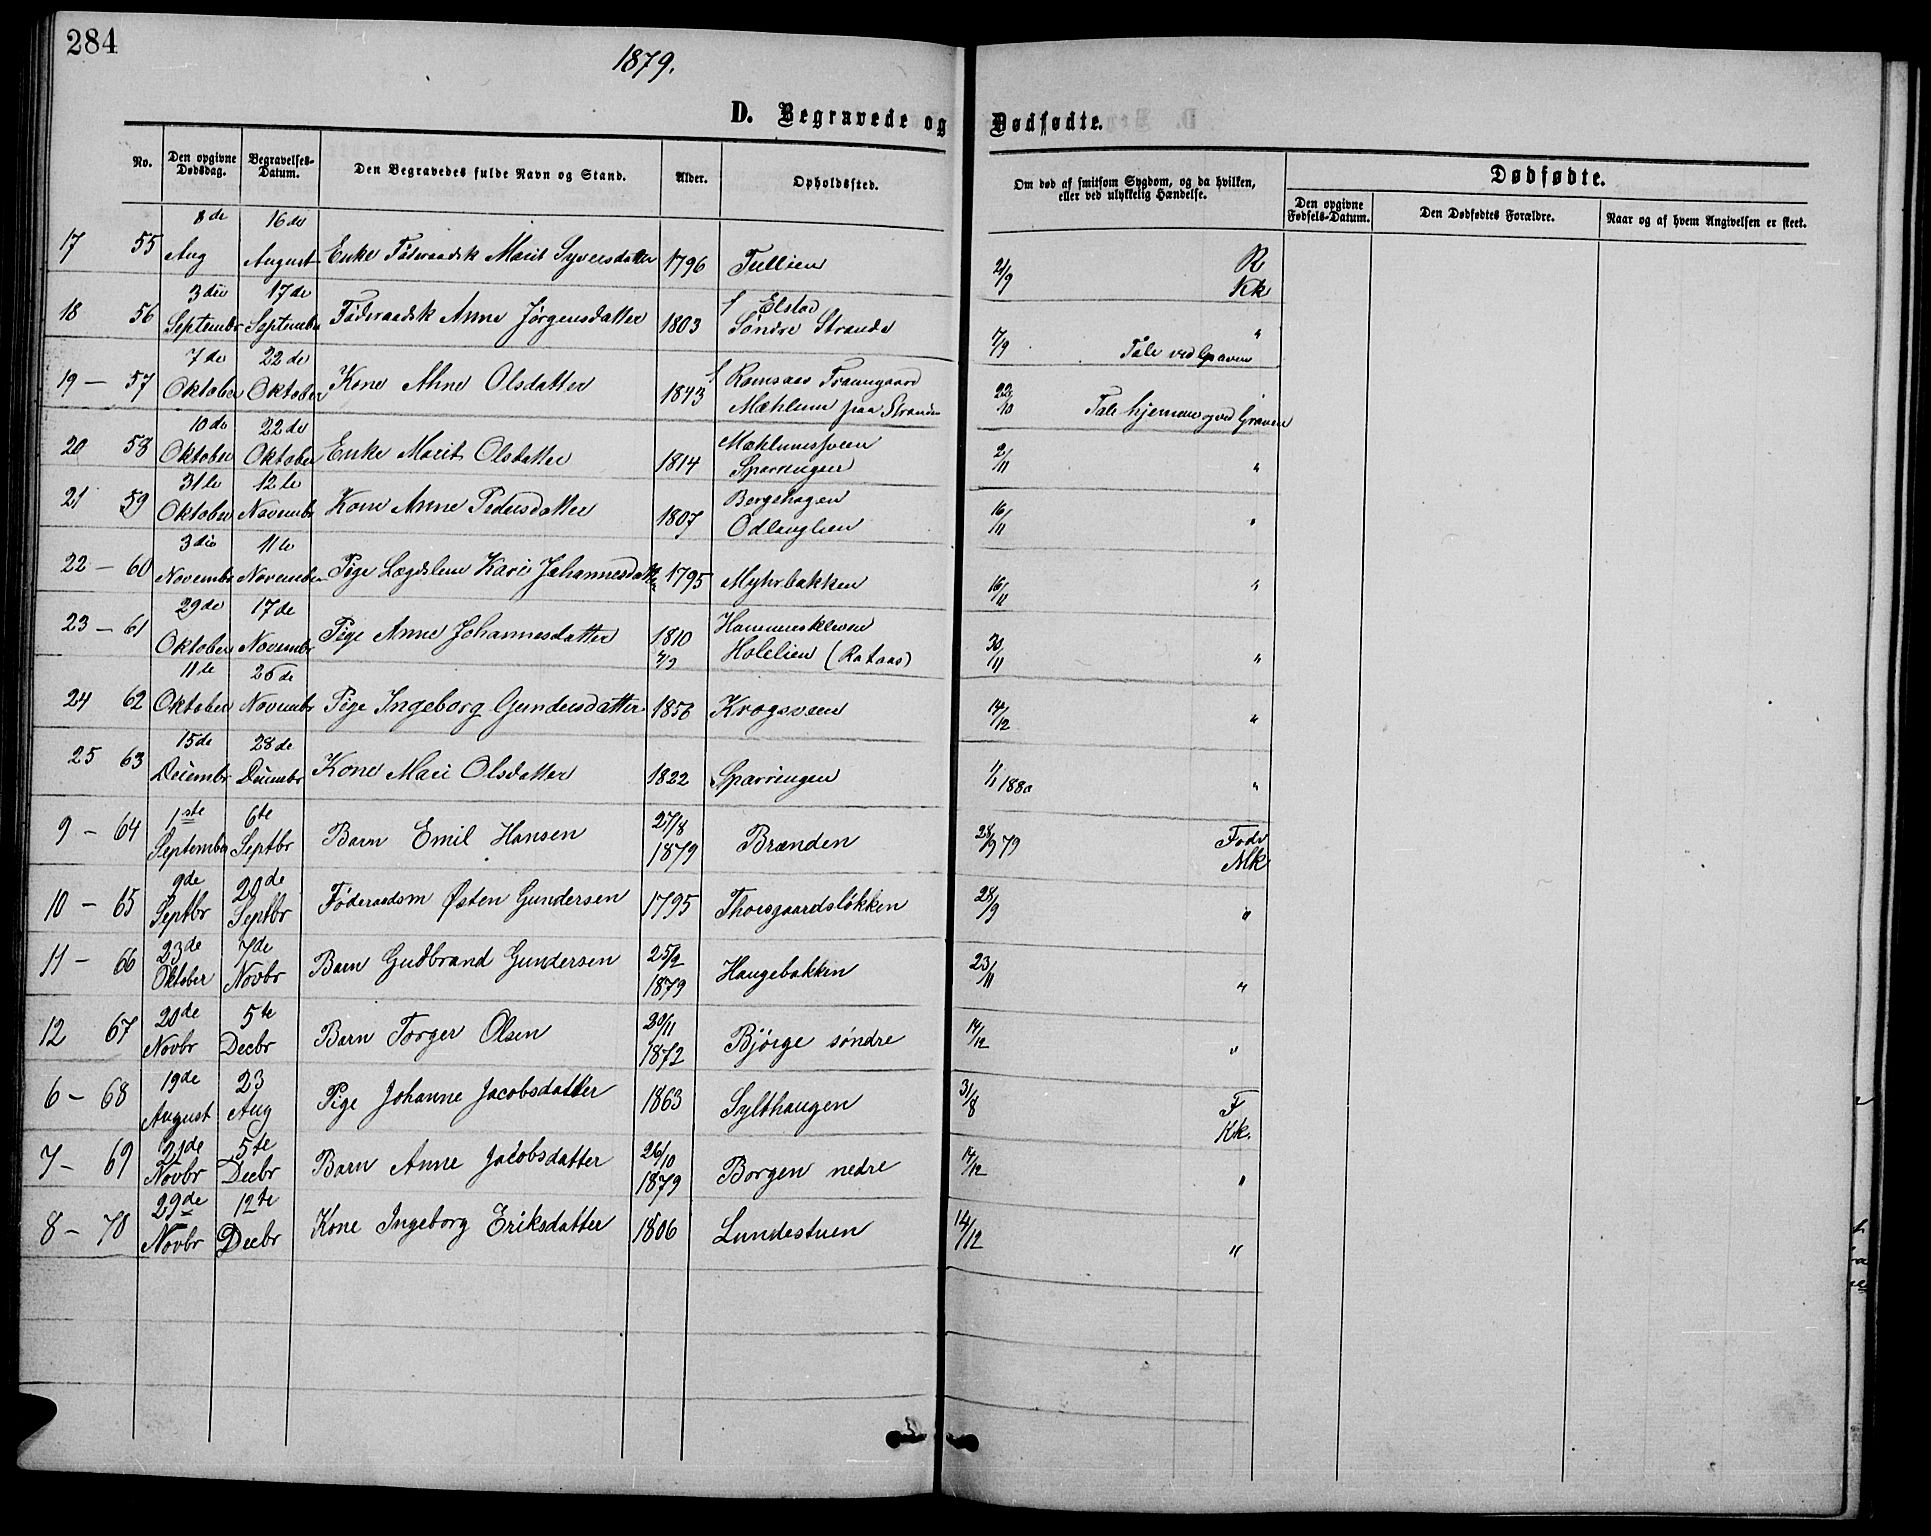 284
1879.
D. Begravede og Dødfødte.
No. Den opgivne Dødsdag. Begravelses-Datum. Den Begravedes fulde Navn og Stand. Alder. Opholdssted. Om død af smitsom Sygdom, og da hvilken, eller ved ulykkelig Hændelse. Dødfødte.
Den opgivne Fødsels-Datum. Den Dødfødtes Forældre. Naar og af hvem Angivelsen er skeet.
17 55 8de Aug 16de August Enke Føderaadsk Marit Syversdatter 1796 Tullien 21/9 R Kk
18 56 3die Septembr 17de Septembr Føderaadsk Anne Jørgensdatter 1803 f Elstad Søndre Strande 17/9 Tale ved Graven "
19 — 57 7de Oktober 22de Oktober Kone Ahne Olsdatter 1843 f Romsaas Framgaard Mæhlum paa Stranden 22/10 Tale hjemme og ved Graven
20 58 10de Oktober 22de Oktober Enke Marit Olsdatter 1814 Mæhlumsveen Sparvengen 2/11 "
21 59 31te Oktober 12te Novembr Kone Anne Pedersdatter 1807 Borgehagen Odlauglien 16/11 "
22 — 60 3die Novembr 11te November Pige Lægdslem Kari Johannesdatter 1795 Myhrbakken 16/11 "
23 — 61 29de Oktober 17de Novembr Pige Anne Johannesdatter 1810 Hammerskleven Holelien (Rataas) 30/11 "
24 62 11te Oktober 26de Novembr Pige Ingeborg Gundersdatter 1856 Krogsveen 14/12 "
25 63 15de Decembr 28de Decembr Kone Mari Olsdatter 1822 Sparvengen 1/1 1880 "
9 — 64 1ste September 6te Septbr Barn Emil Hansen 27/8 1879 Brænden 28/9 79 Fodv Mk
10 — 65 9de Septbr 20de Septbr Føderaadsm Østen Gundersen 1795 Thorsgaardsløkken 28/9 "
11 — 66 23de Oktober 7de Novbr Barn Gudbrand Gundersen 25/2 1879 Haugebakken 23/11 "
12 67 20de Novbr 5te Decbr Barn Torger Olsen 20/11 1872 Bjørge søndre 14/12 "
6 — 68 19de August 23 Aug Pige Johanne Jacobsdatter 1863 Sylthaugen 31/8 F Kk.
7 — 69 21de Novbr 5te Decbr Barn Anne Jacobsdatter 26/10 1879 Borgen nedre 14/12 "
8 — 70 29de Novbr 12te Decbr Kone Ingeborg Eriksdatter 1806 Lundestuen 14/12 "